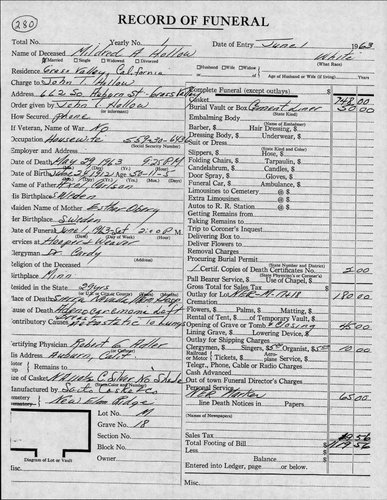 280
RECORD OF FUNERAL
Total No. Yearly No. 1 Date of Entry June 1 1963
Name of Deceased Mildred A Hollow White
Married Single Widowed Divorced Husband Wife Widow (What Race)
Residence: Grass Valley, California Age of Husband or Wife (if living)
Charge to John T. Hollow
Address 662 So Auburn St - Grass Valley
Complete Funeral (except outlays)
Casket 748.00
Order given by John T Hollow
Burial Vault or Box Cement Liner 50.00
(State Kind)
How Secured phone
Embalming
(Name of Embalmer)
If Veteran, Name of War No
Barber, $ Hair Dressing, $
Occupation Housewife
(Social Security Number)
Dressing Body, $ Underwear, $
Suit or Dress
(State Kind and Color)
Employer and Address
Slippers, $ Hose, $
Date of Death May 29, 1963 9:25 P.M.
(Hour)
Folding Chairs, $ Tarpaulin, $
Candelabrum, $ Candles, $
Date of Birth June 28 1912 Age 50-11-5
Door Spray, $ Gloves, $
Name of Father Axel Carlson
Funeral Car, $ Ambulance, $
His Birthplace Sweden
Limousines to Cemetery @ $
Extra Limousines @ $
Maiden Name of Mother Esther
Autos to R. R. Station @ $
Her Birthplace Sweden
Getting Remains from
Taking Remains to
Date of Funeral June 1, 1963-Sat 2:00 P.M.
(Date) (Day of Week) (Hour)
Trip to Coroner's Inquest
Services at Hooper & Weaver
Delivering Box to
Deliver Flowers to
Clergyman Dr Candy
Removing Remains
Religion of the Deceased
Procuring Burial Permit
Birthplace Minn
1 Certif. Copy of Death Certificates No. 2.00
(State Physician's or Coroner's)
Resided in the State 29 yrs
Pall Bearer Service, $ Use of Chapel, $
Gross Total for Sales Tax
Place of Death Sierra Nevada Mem Hosp
Outlay for Lot 180.00
Cremation
Cause of Death Adenocarcinoma left
Flowers, $ Palms, $ Matting, $
Rental of Tent, $ of Temporary Vault, $
Contributory Causes Metastatic to lumps
Opening of Grave or Tomb & Closing 45.00
Lining Grave, $ Lowering Device, $
Outlay for Shipping Charges
Certifying Physician Robert G Adler
Clergyman, $ Singers, $5 Organist, $5 10.00
His Address Auburn, Calif
Railroad or Motor Tickets, $ Aeroplane Service, $
Telegr., Phone, Cable or Radio Charges
Remains
Cash Advanced
Size of Casket
Out of town Funeral Director's Charge
Personal Service
Manufactured by Santa Casket Co
Marker 65.00
line Death Notices in Papers
(Names of Newspapers)
Cemetery New Elm Ridge
Lot No.
Grave No. 18
Section No.
Sales Tax
Block No.
Total Footing of Bill
Less
Balance
Entered into Ledger, page or below.
Diagram of Lot or Vault
Owner
Misc.
Misc.